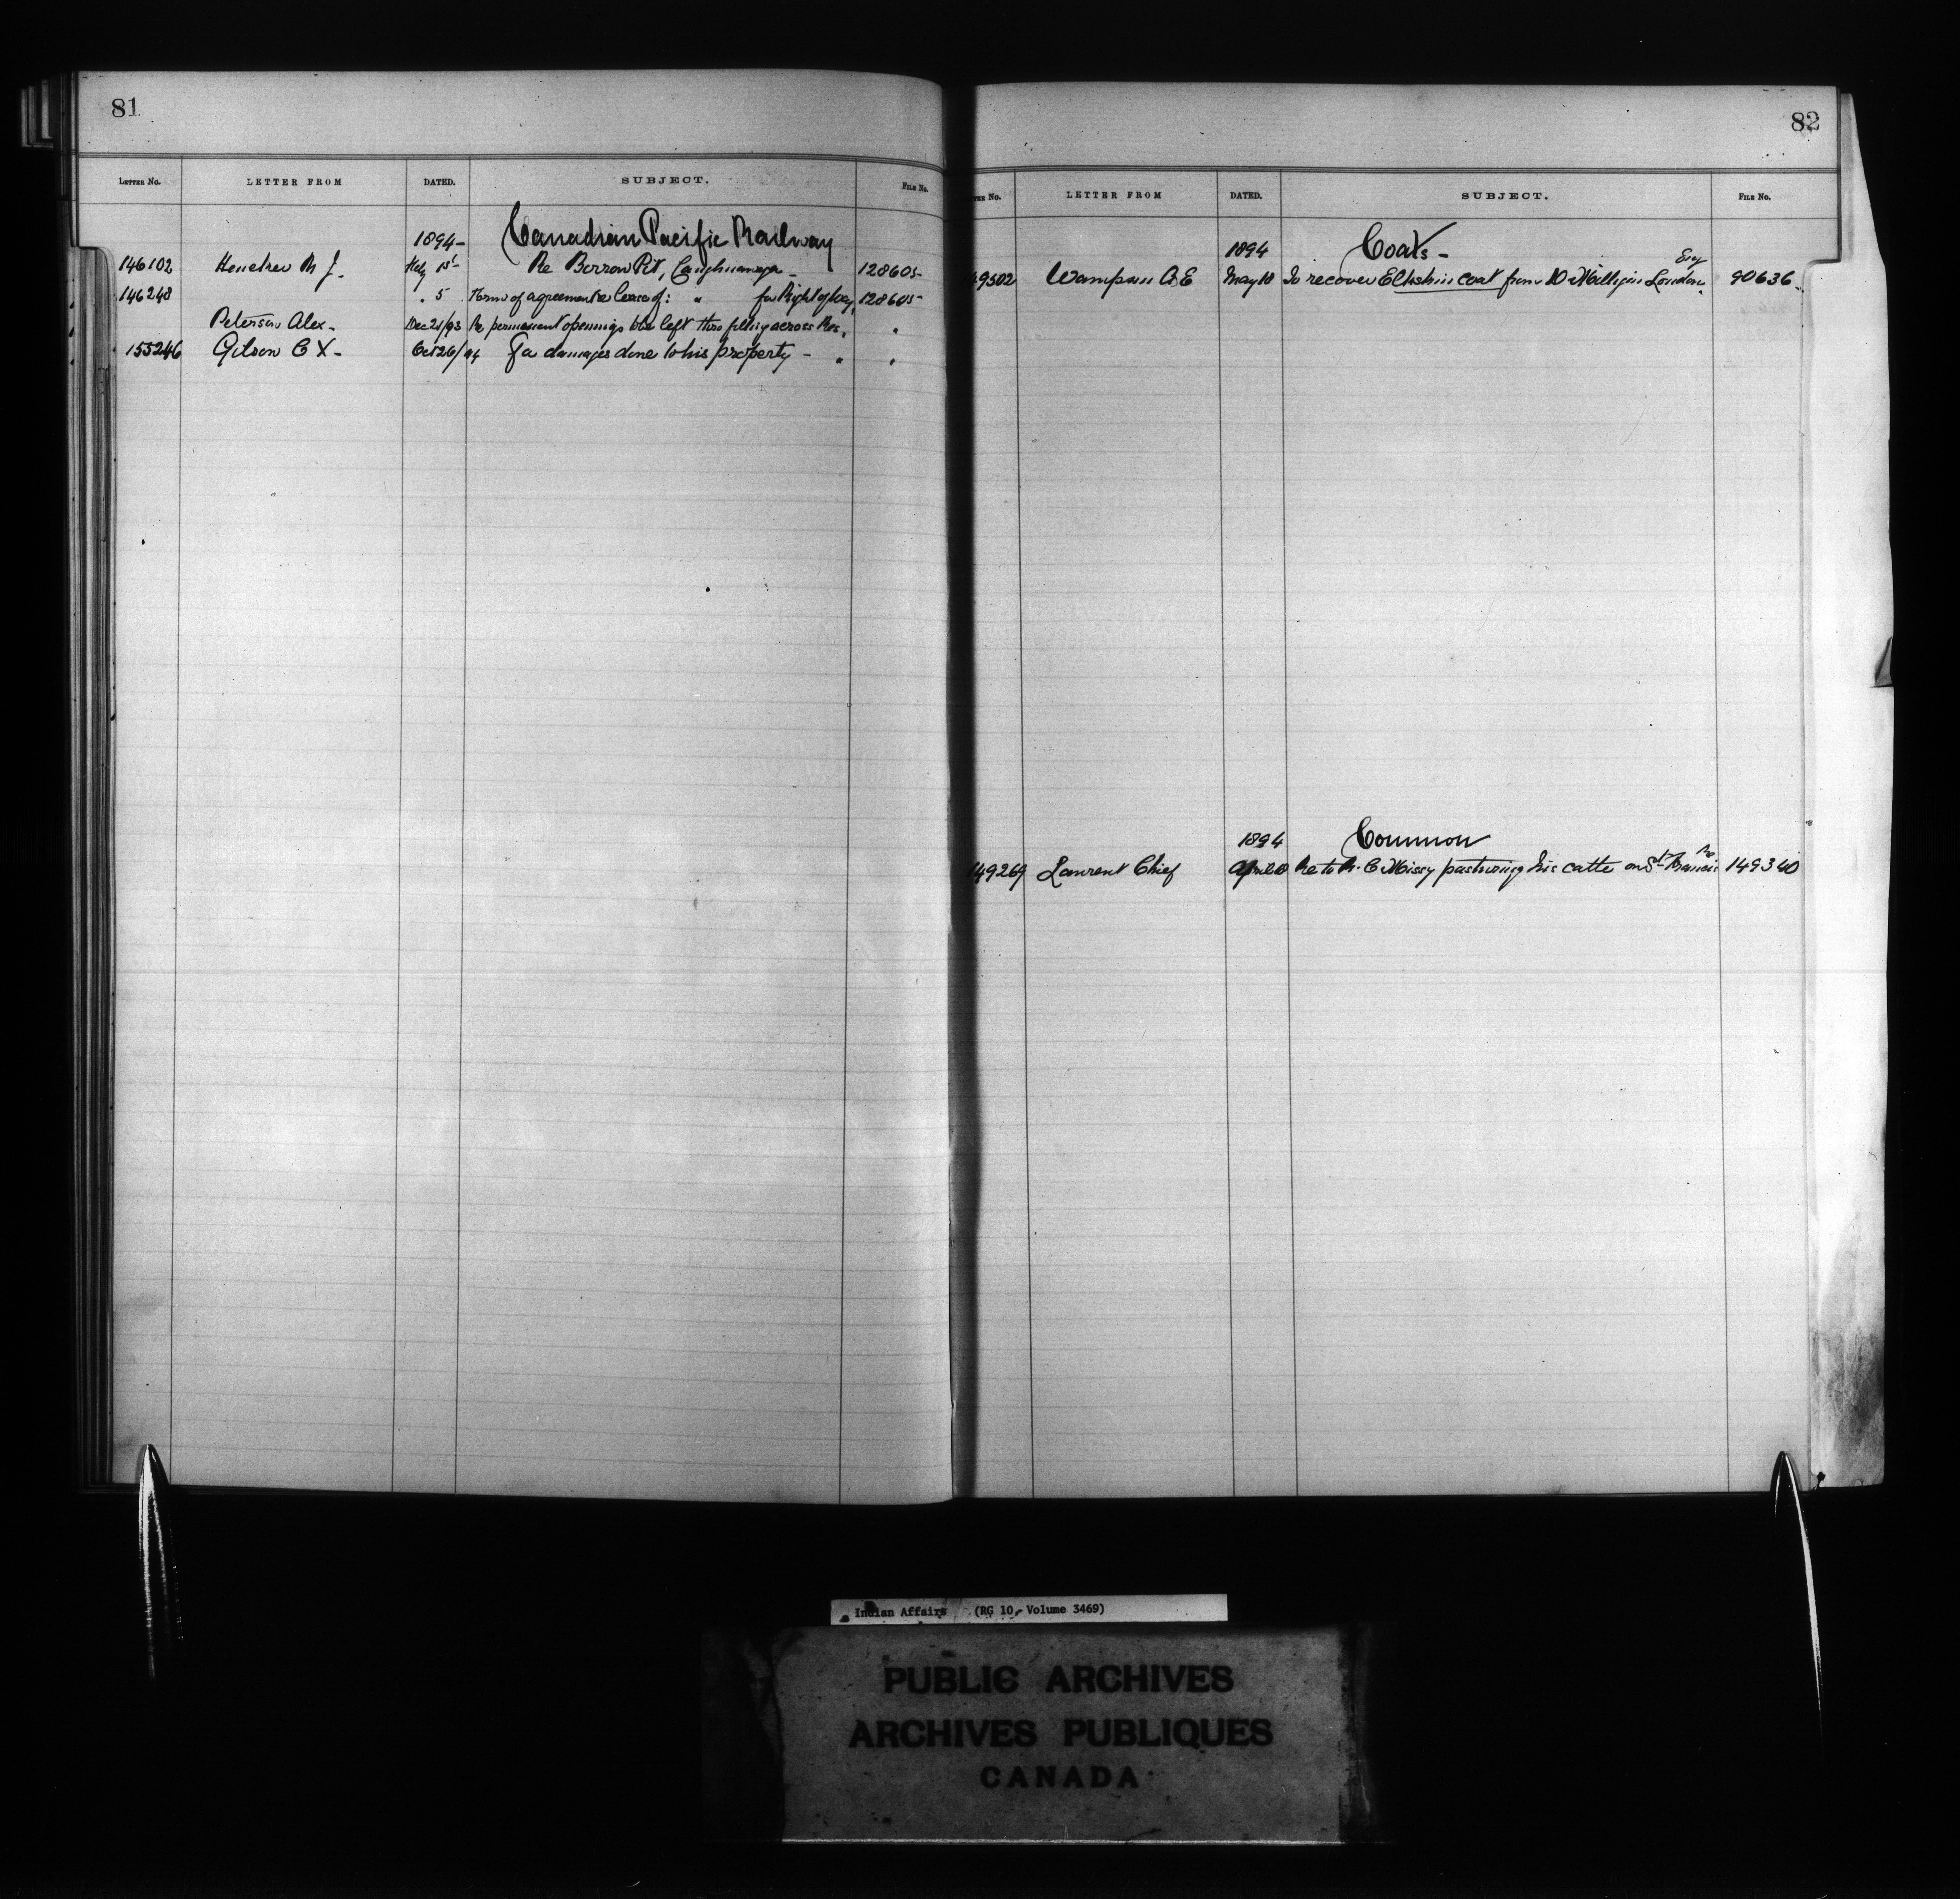 81
LETTER NO. LETTER FROM DATED. SUBJECT. FILE NO.
1894- Canadian Pacific Railway
146102 M J. 1st Re Borrow Pit, Caughnawaga - 128605-
146248 " 5 Form of agreement & lease of: " for Right of Way, 128605-
Peterson Alex- Dec 21/93 Re permanent openings to be left thro filling across Res. "
155246 Gilson C X- Oct 26/94 For damages done to his property - " "
82
TER NO. LETTER FROM DATED. SUBJECT. FILE NO.
1894 Coats-
49502 Wampum A E May 10 To recover Elkskin coat from London, Eng 90636.
1894 Common
149269 Laurent Chief April Re to pasturing his cattle on St Francis Re 149340
Indian Affairs (RG 10, Volume 3469)
PUBLIC ARCHIVES
ARCHIVES PUBLIQUES
CANADA